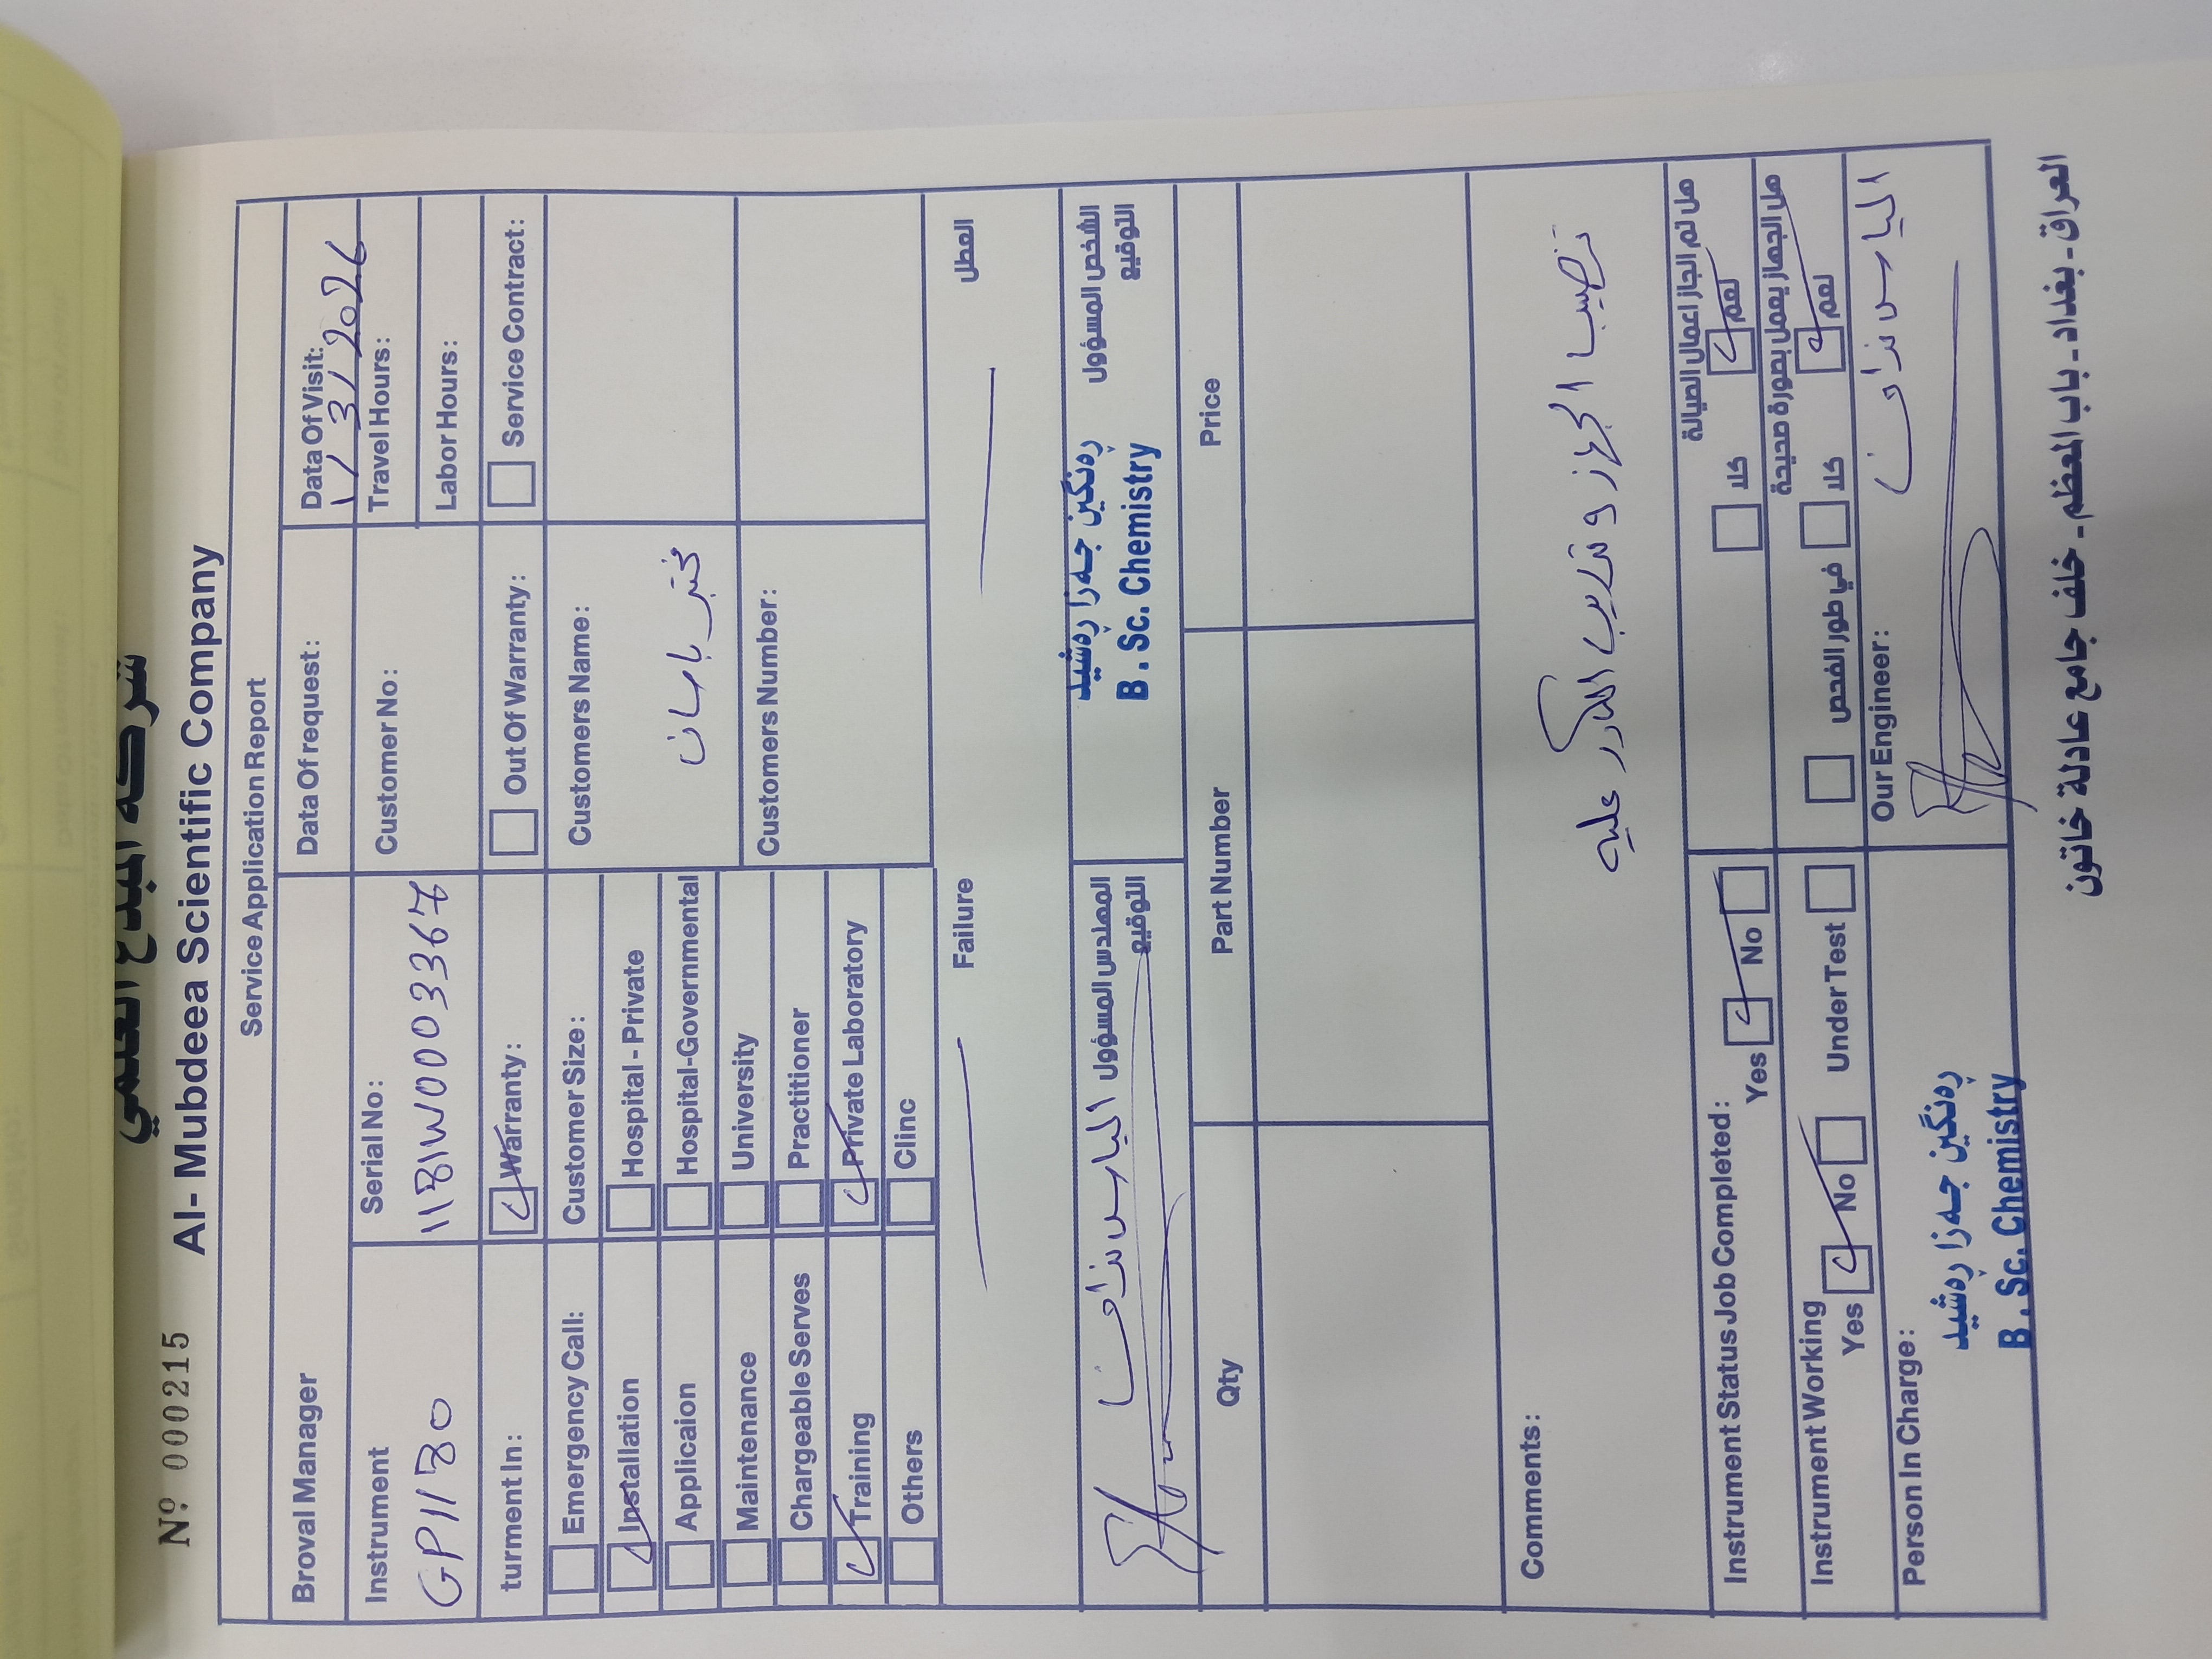 شركة المبدع العلمي
Nº 000215 Al- Mubdeea Scientific Company
Service Application Report
Broval Manager
Data Of request:
Data Of Visit:
1/3/2026
Instrument
GP1180
Serial No:
Customer No:
Travel Hours:
Labor Hours:
turment In:
Warranty:
Out Of Warranty:
Service Contract:
Emergency Call:
Installation
Applicaion
Maintenance
Chargeable Serves
Training
Others
Customer Size:
Hospital - Private
Hospital-Governmental
University
Practitioner
Private Laboratory
Clinc
Customers Name:
مختبر باسان
Customers Number:
Failure
العطل
المهندس المسؤول
التوقيع
الياس
الشخص المسؤول
التوقيع
ڕەنگین جەزا ڕەشید
B . Sc. Chemistry
Qty
Part Number
Price
Comments:
تنصيب الجهاز و تدريب الكادر عليه
Instrument Status Job Completed:
Yes
No
هل تم انجاز اعمال الصيانة
نعم
كلا
Instrument Working
Yes
No
Under Test
هل الجهاز يعمل بصورة صحيحة
نعم
كلا
في طور الفحص
Person In Charge:
ڕەنگین جەزا ڕەشید
B . Sc. Chemistry
Our Engineer:
الياس